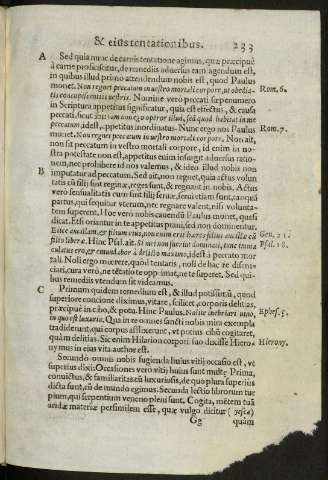 & eius tentationibus. 233
A Sed quia nunc de carnis tentatione agimus, quæ præcipuè
à carne proficiscitur, de remediis aduersus eam agendum est,
in quibus illud primo attendendum nobis est, quod Paulus
monet. Non regnet peccatum in vestro mortali corpore, vt obedia- Rom. 6.
tis concupiscentiis eius. Nomine verò peccati sæpenumero
in Scriptura appetitus significatur, quia est effectus, & causa
peccati, sicut ibi: iam non ego operor illud, sed quod habitat in me Rom. 7.
peccatum, idest, appetitus inordinatus. Nunc ergo nos Paulus
monet. Non regnet peccatum in vestro mortali corpore. Non ait,
non sit peccatum in vestro mortali corpore, id enim in no-
stra potestate non est, appetitus enim insurgit aduersus ratio-
nem, nec prohibere id nos valemus, & ideo illud nobis non
B imputatur ad peccatum. Sed ait, non regnet, quia actus volun
tatis tã filij sunt reginæ, reges sunt, & regnant in nobis. Actus
verò sensualitatis cum sint filij seruæ, serui etiam sunt, tanquã
partus, qui sequitur vterum, nec regnare valent, nisi volunta-
tem superent. Hoc verò nobis cauendũ Paulus monet, quasi
dicat. Etsi oriantur in te appetitus praui, sed non dominentur.
Eiice ancillam, & filium eius, non enim erit hæres filius ancillæ cũ Gen. 21.
filio liberæ. Hinc Psal. ait. Si mei non fuerint dominati, tunc imma Psal. 18.
culatus ero, & emundabor à delicto maximo, idest à peccato mor
tali. Noli ergo mœrere, quòd tentaris, noli de hac re desma-
ciari, cura verò, ne tẽtatio te opprimat, ne te superet. Sed qui-
bus remediis vtendum sit videamus.
C Primum quidem remedium est, & illud potissimũ, quod
superiore concione diximus, vitare, scilicet, corporis delitias,
præcipuè in cibo, & potu. Hinc Paulus. Nolite inebriari uino, Ephes. 5.
in quo est luxuria. Qua in re omnes sancti nobis mira exempla
tradiderunt, qui corpus afflixerunt, vt potius cibũ cogitaret,
quàm delitias. Sic enim Hilarion corpori suo dicisse Hiero- Hierony.
nymus in eius vita author est.
Secundò omnis nobis fugienda huius vitij occasio est, vt
superius dixi: Occasiones vero vitij huius sunt multę. Prima,
conuictus, & familiaritas cũ luxuriosis, de quo plura superius
dicta sunt, cũ de mundo egimus. Secunda lectio librorum tur
pium, qui serpentium veneno pleni sunt. Cogita, mẽtem tuã
aridæ materiæ persimilem esse, quæ vulgo dicitur (yesca)
Gg quàm